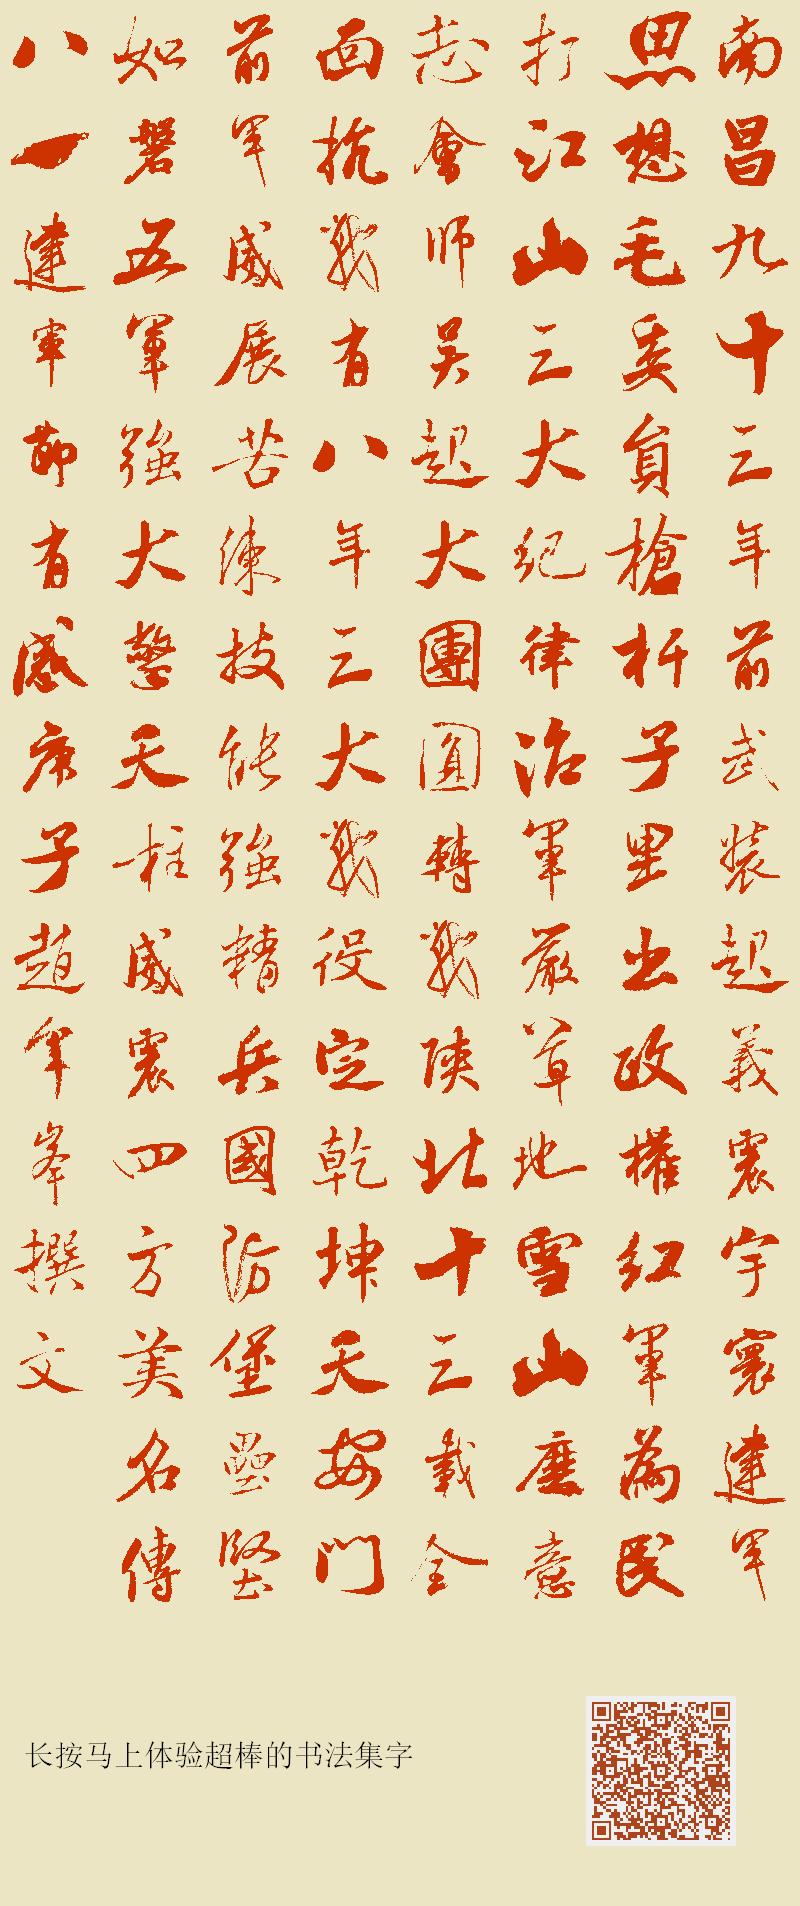 南昌九十三年前武裝起義震宇寰建軍
思想毛委員槍杆子里出政權紅軍為民
打江山三大紀律治軍嚴草地雪山磨意
志會師吴起大團圓轉戰陕北十三載全
面抗戰有八年三大戰役定乾坤天安門
前軍威展苦練技能強精兵國防堡壘堅
如磐五軍強大擎天柱威震四方美名傳
八一建軍節有感庚子趙年峯撰文
长按马上体验超棒的书法集字